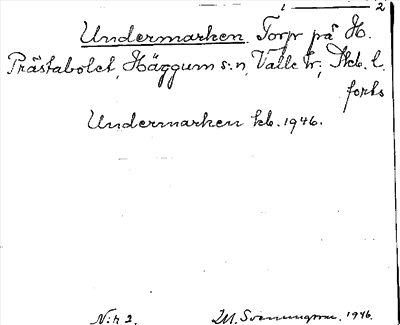 1 — 2
Undermarken. Torp på H.
Prästabolet, Häggum s:n, Valle hr, Skb. l.
forts
Undermarken kb. 1946.
N:r 2. M. Svenungsson. 1946.